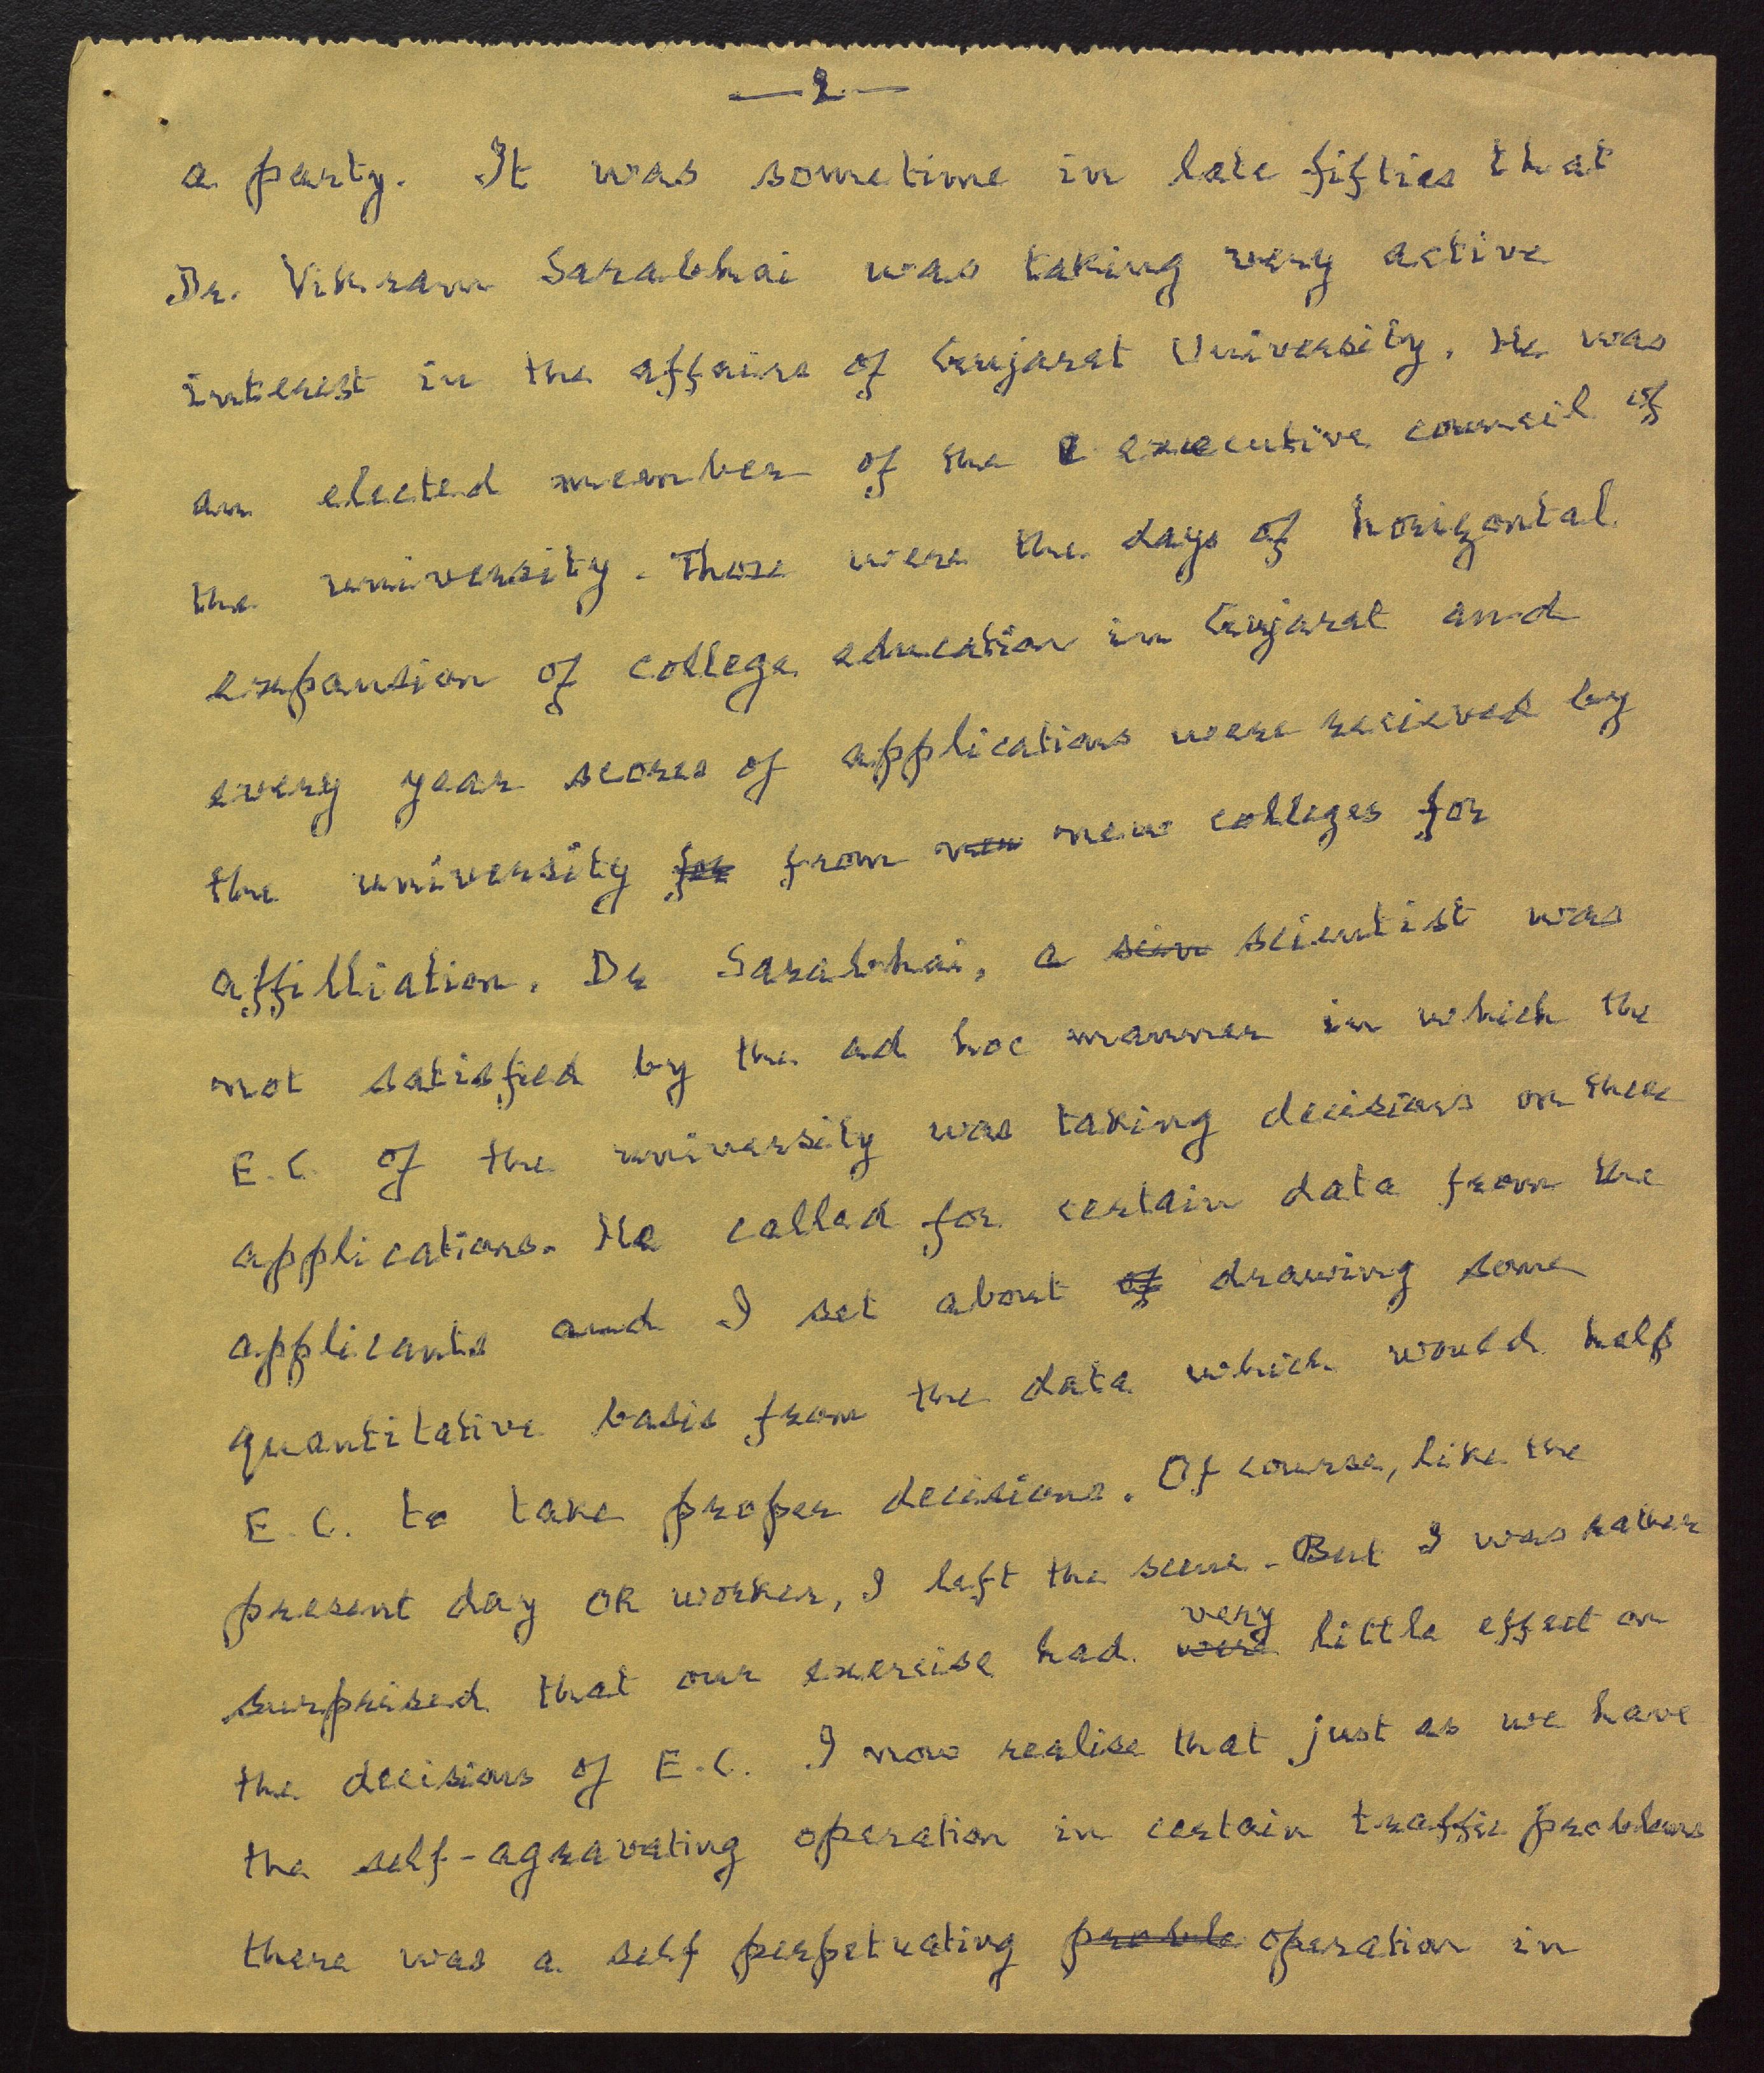 —2—
a party. It was sometime in late fifties that
Dr. Vikram Sarabhai was taking very active
interest in the affairs of Gujarat University. He was
an elected member of the executive council of
the university. Those were the days of horizontal
expansion of college education in Gujarat and
every year scores of applications were recieved by
the university for from new new colleges for
affilliation. Dr Sarabhai, a scien scientist was
not satisfied by the ad hoc manner in which the
E.C. of the university was taking decisions on these
applications. He called for certain data from the
applicants and I set about of drawing some
quantitative basis from the data which would help
E.C. to take proper decisions. Of course, like the
present day OR worker, I left the scene. But I was rather
very
surprised that our exercise had were little effect on
the decisions of E.C. I now realise that just as we have
the self-agravating operation in certain traffic problems
there was a self perpetuating proble operation in